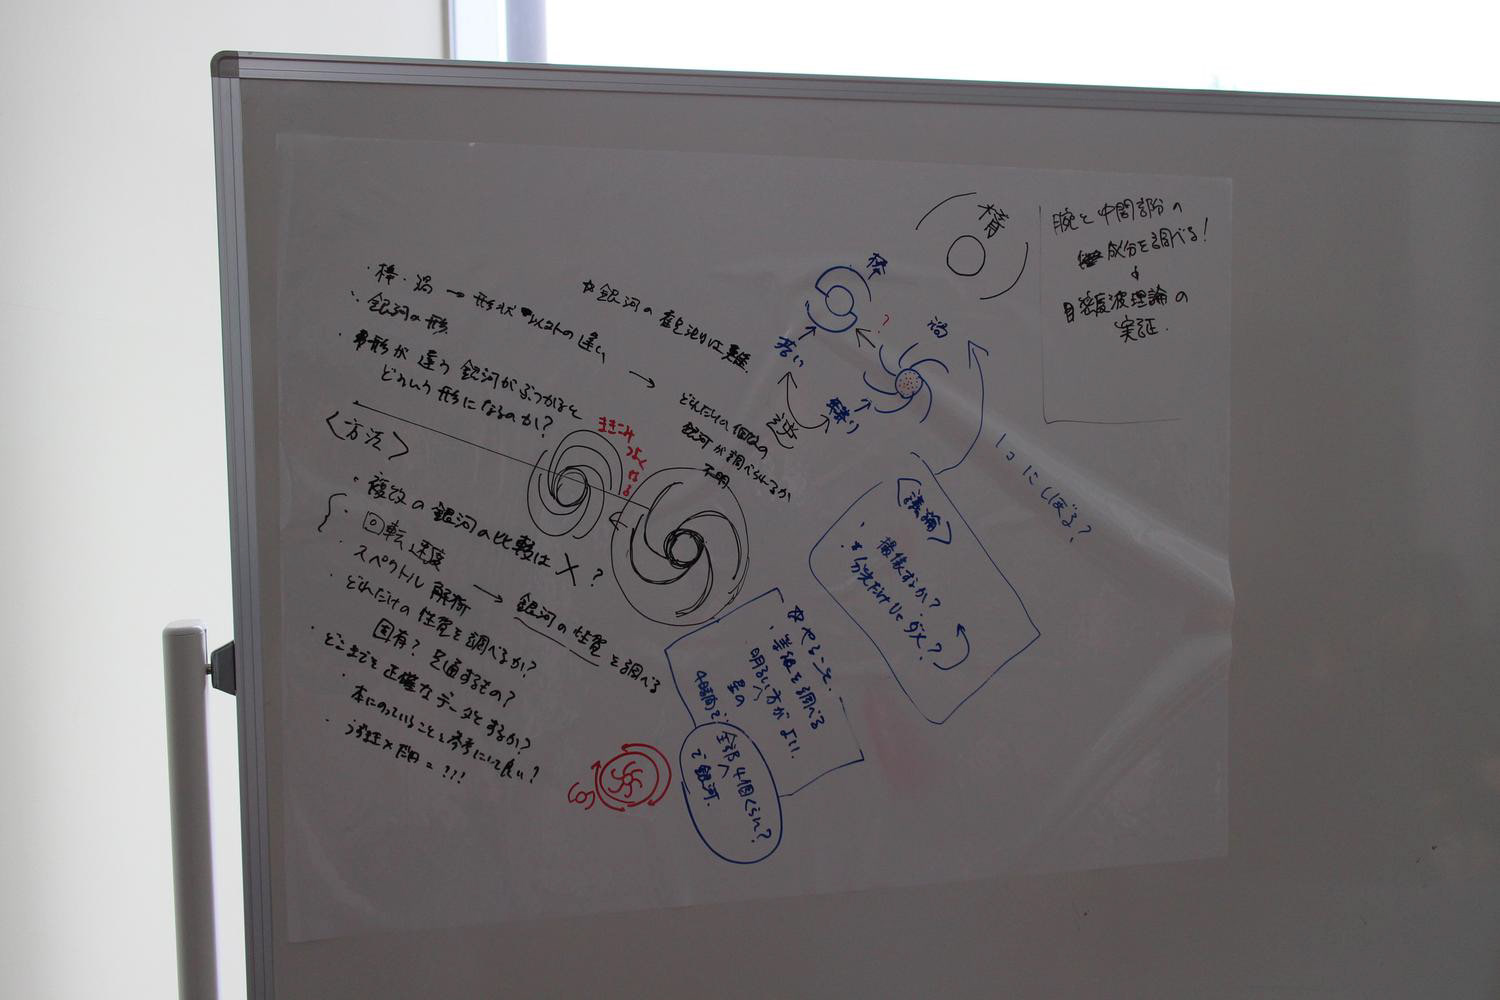 ・棒・渦 → 形状以外の違い
・銀河の形
・形が違う銀河がぶつかると
どういう形になるのか?
☆銀河の は難
→ どれだけの個数の
銀河が調べられるか
不明
<方法>
・複数の銀河の比較は×?
・回転速度
・スペクトル解析
→ 銀河の性質を調べる
・どれだけの性質を調べるか?
固有? 共通するもの?
・どこまでを正確なデータとするか?
・本にのっていることを参考にして良い?
= ???
まきこみ
つよく
なる
棒
精
渦
?
若い
逆
腕と中間部分の
成分を調べる!
↓
密度波理論の
実証.
1つにしぼる?
<議論>
・撮像するか?
・分光だけじゃダメ?
☆やること.
・等級を調べる
明るい方がよい.
星の
4時間で
全部4個くらい?
で銀河.